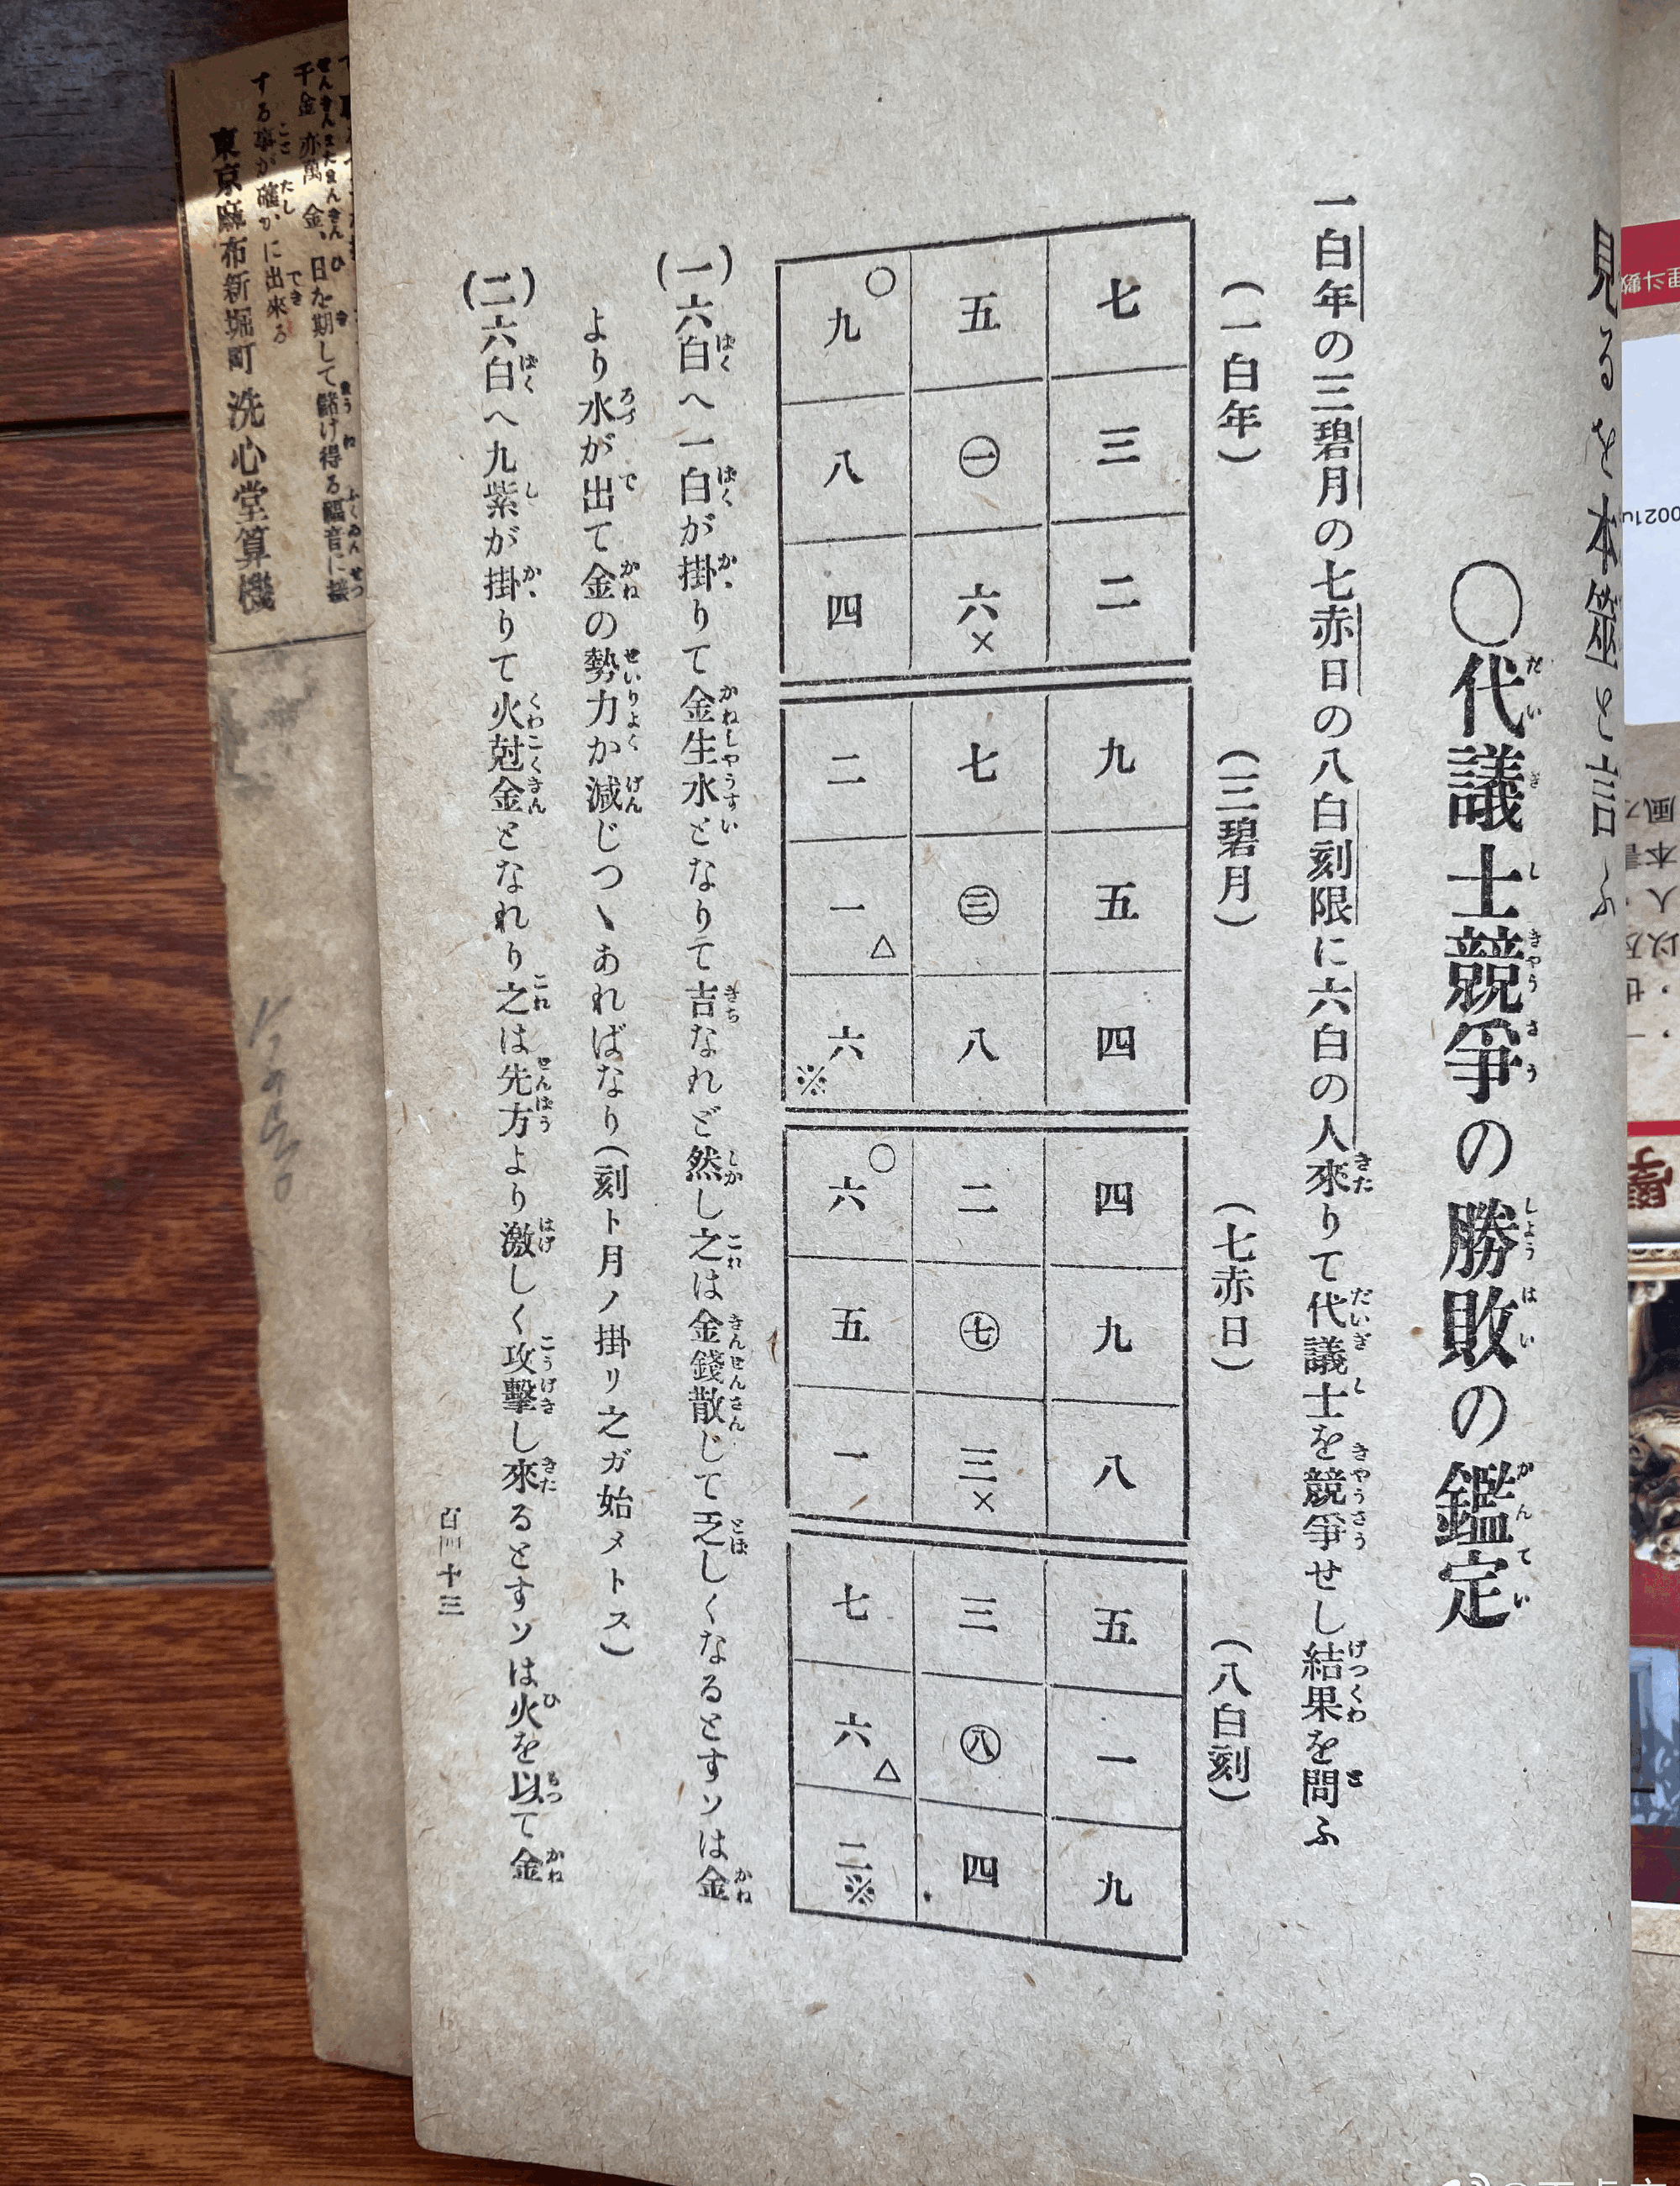 見るを本筮と言ふ
〇代議士競爭の勝敗の鑑定
一白年の三碧月の七赤日の八白刻限に六白の人來りて代議士を競爭せし結果を問ふ
(一白年)
(三碧月)
(七赤日)
(八白刻)
七 三 二
五 ㊀ 六×
九〇 八 四
九 五 四
七 ㊂ 八
二 一△ 六※
四 九 八
二 ㊆ 三×
六〇 五 一
五 一 九
三 ㊇ 四
七 六△ 二※
(一)六白へ一白が掛りて金生水となりて吉なれど然し之は金錢散じて乏しくなるとすソは金
より水が出て金の勢力か減じつヽあればなり(刻ト月ノ掛リ之ガ始メトス)
(二)六白へ九紫が掛りて火尅金となれり之は先方より激しく攻擊し來るとすソは火を以て金
百四十三
千金亦萬金、日を期して儲け得る福音に接
する事が確かに出來る
東京麻布新堀町 洗心堂算機